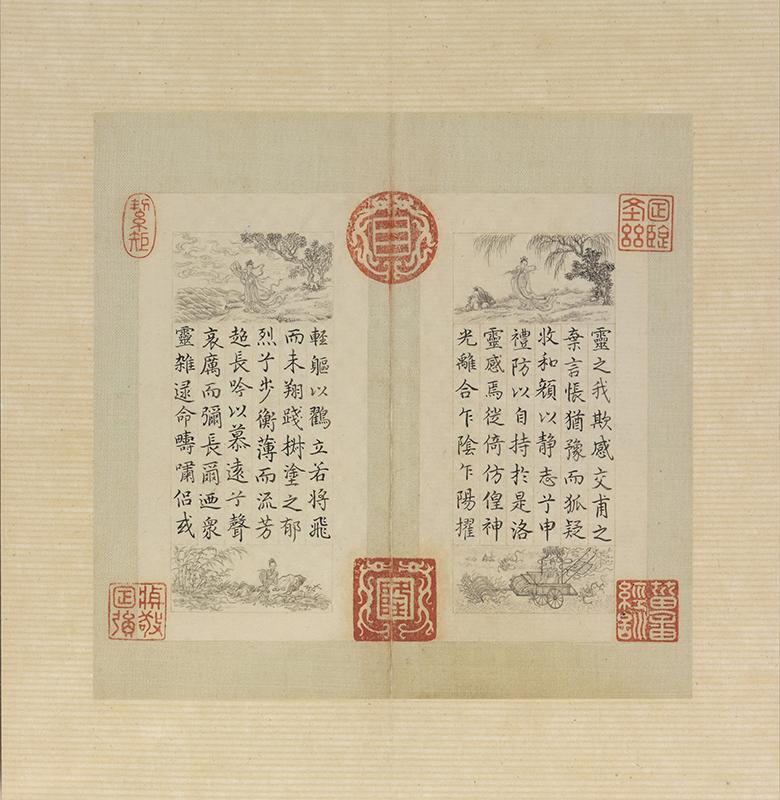 靈之我欺感交甫之
棄言悵猶豫而狐疑
收和顏以静志兮申
禮防以自持於是洛
靈感焉徙倚仿偟神
光離合乍陰乍陽擢
輕軀以鶴立若將飛
而未翔踐椒塗之郁
烈兮步衡薄而流芳
超長吟以慕遠兮聲
哀厲而彌長爾迺衆
靈雜遝命疇嘯侶或
絜矩